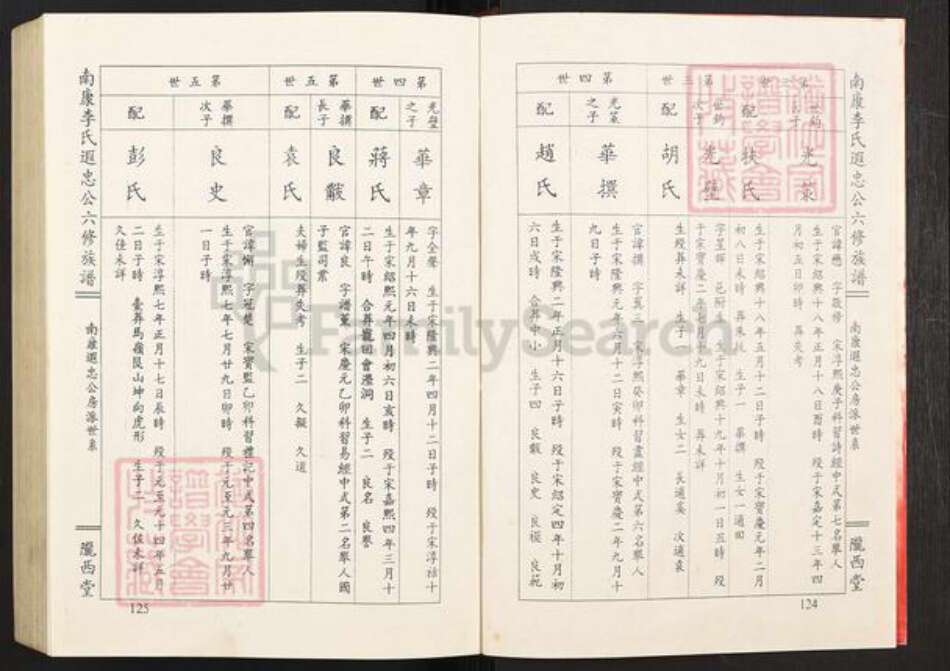 南康李氏遐忠公六修族譜
南康遐忠公房派世系
隴西堂
124
第三世
世鈞長子
光策
官諱懋 字敬修 宋淳熙庚子科習詩經中式第七名舉人
生于宋紹興十八年正月十八日酉時 歿于宋嘉定十三年四
月初五日卯時 葬失考
配
扶氏
生于宋紹興十八年五月十二日子時 歿于宋寶慶元年二月
初八日未時 葬朱坑 生子一 華撰 生女一適田
世鈞次子
光璧
字星輝 邑附生 生于宋紹興十九年十月初一日丑時 歿
于宋寶慶二年七月十九日未時 葬未詳
胡氏
生歿葬未詳 生子一 華章 生女二 長適奚 次適袁
第四世
光策之子
華撰
官諱撰 字
宋淳熙癸卯科習書經中式第六名舉人
生于宋隆興元年六月十二日寅時 歿于宋寶慶二年九月十
九日子時
配
趙氏
生于宋隆興二年正月十六日子時 歿于宋紹定四年十月初
六日戌時 合葬中小 生子四 良黻 良史 良模 良範
第四世
光璧之子
華章
字全聲 生于宋隆興二年四月十二日子時 歿于宋淳祐十
年九月十六日未時
配
蔣氏
生于宋紹熙元年四月初六日亥時 歿于宋嘉熙四年三月十
二日午時 合葬龍回會灣洞 生子二 良名 良譽
第五世
華撰長子
良黻
官諱良 字譜薰 宋慶元乙卯科習易經中式第二名舉人國
子監司業
配
袁氏
夫婦生歿葬失考 生子二 久擬 久道
第五世
華撰次子
良史
字冠楚 宋寶監乙卯科習禮記中式第四名舉人
生于宋淳熙七年七月廿九日卯時 歿于元至元三年九月廿
一日子時
配
彭氏
生于宋淳熙七年正月十七日辰時 歿于元至元十四年五月
二日子時 葬馬嶺艮山坤向虎形 生子二 久俊未詳
久佳未詳
南康李氏遐忠公六修族譜
南康遐忠公房派世系
隴西堂
125
FamilySearch